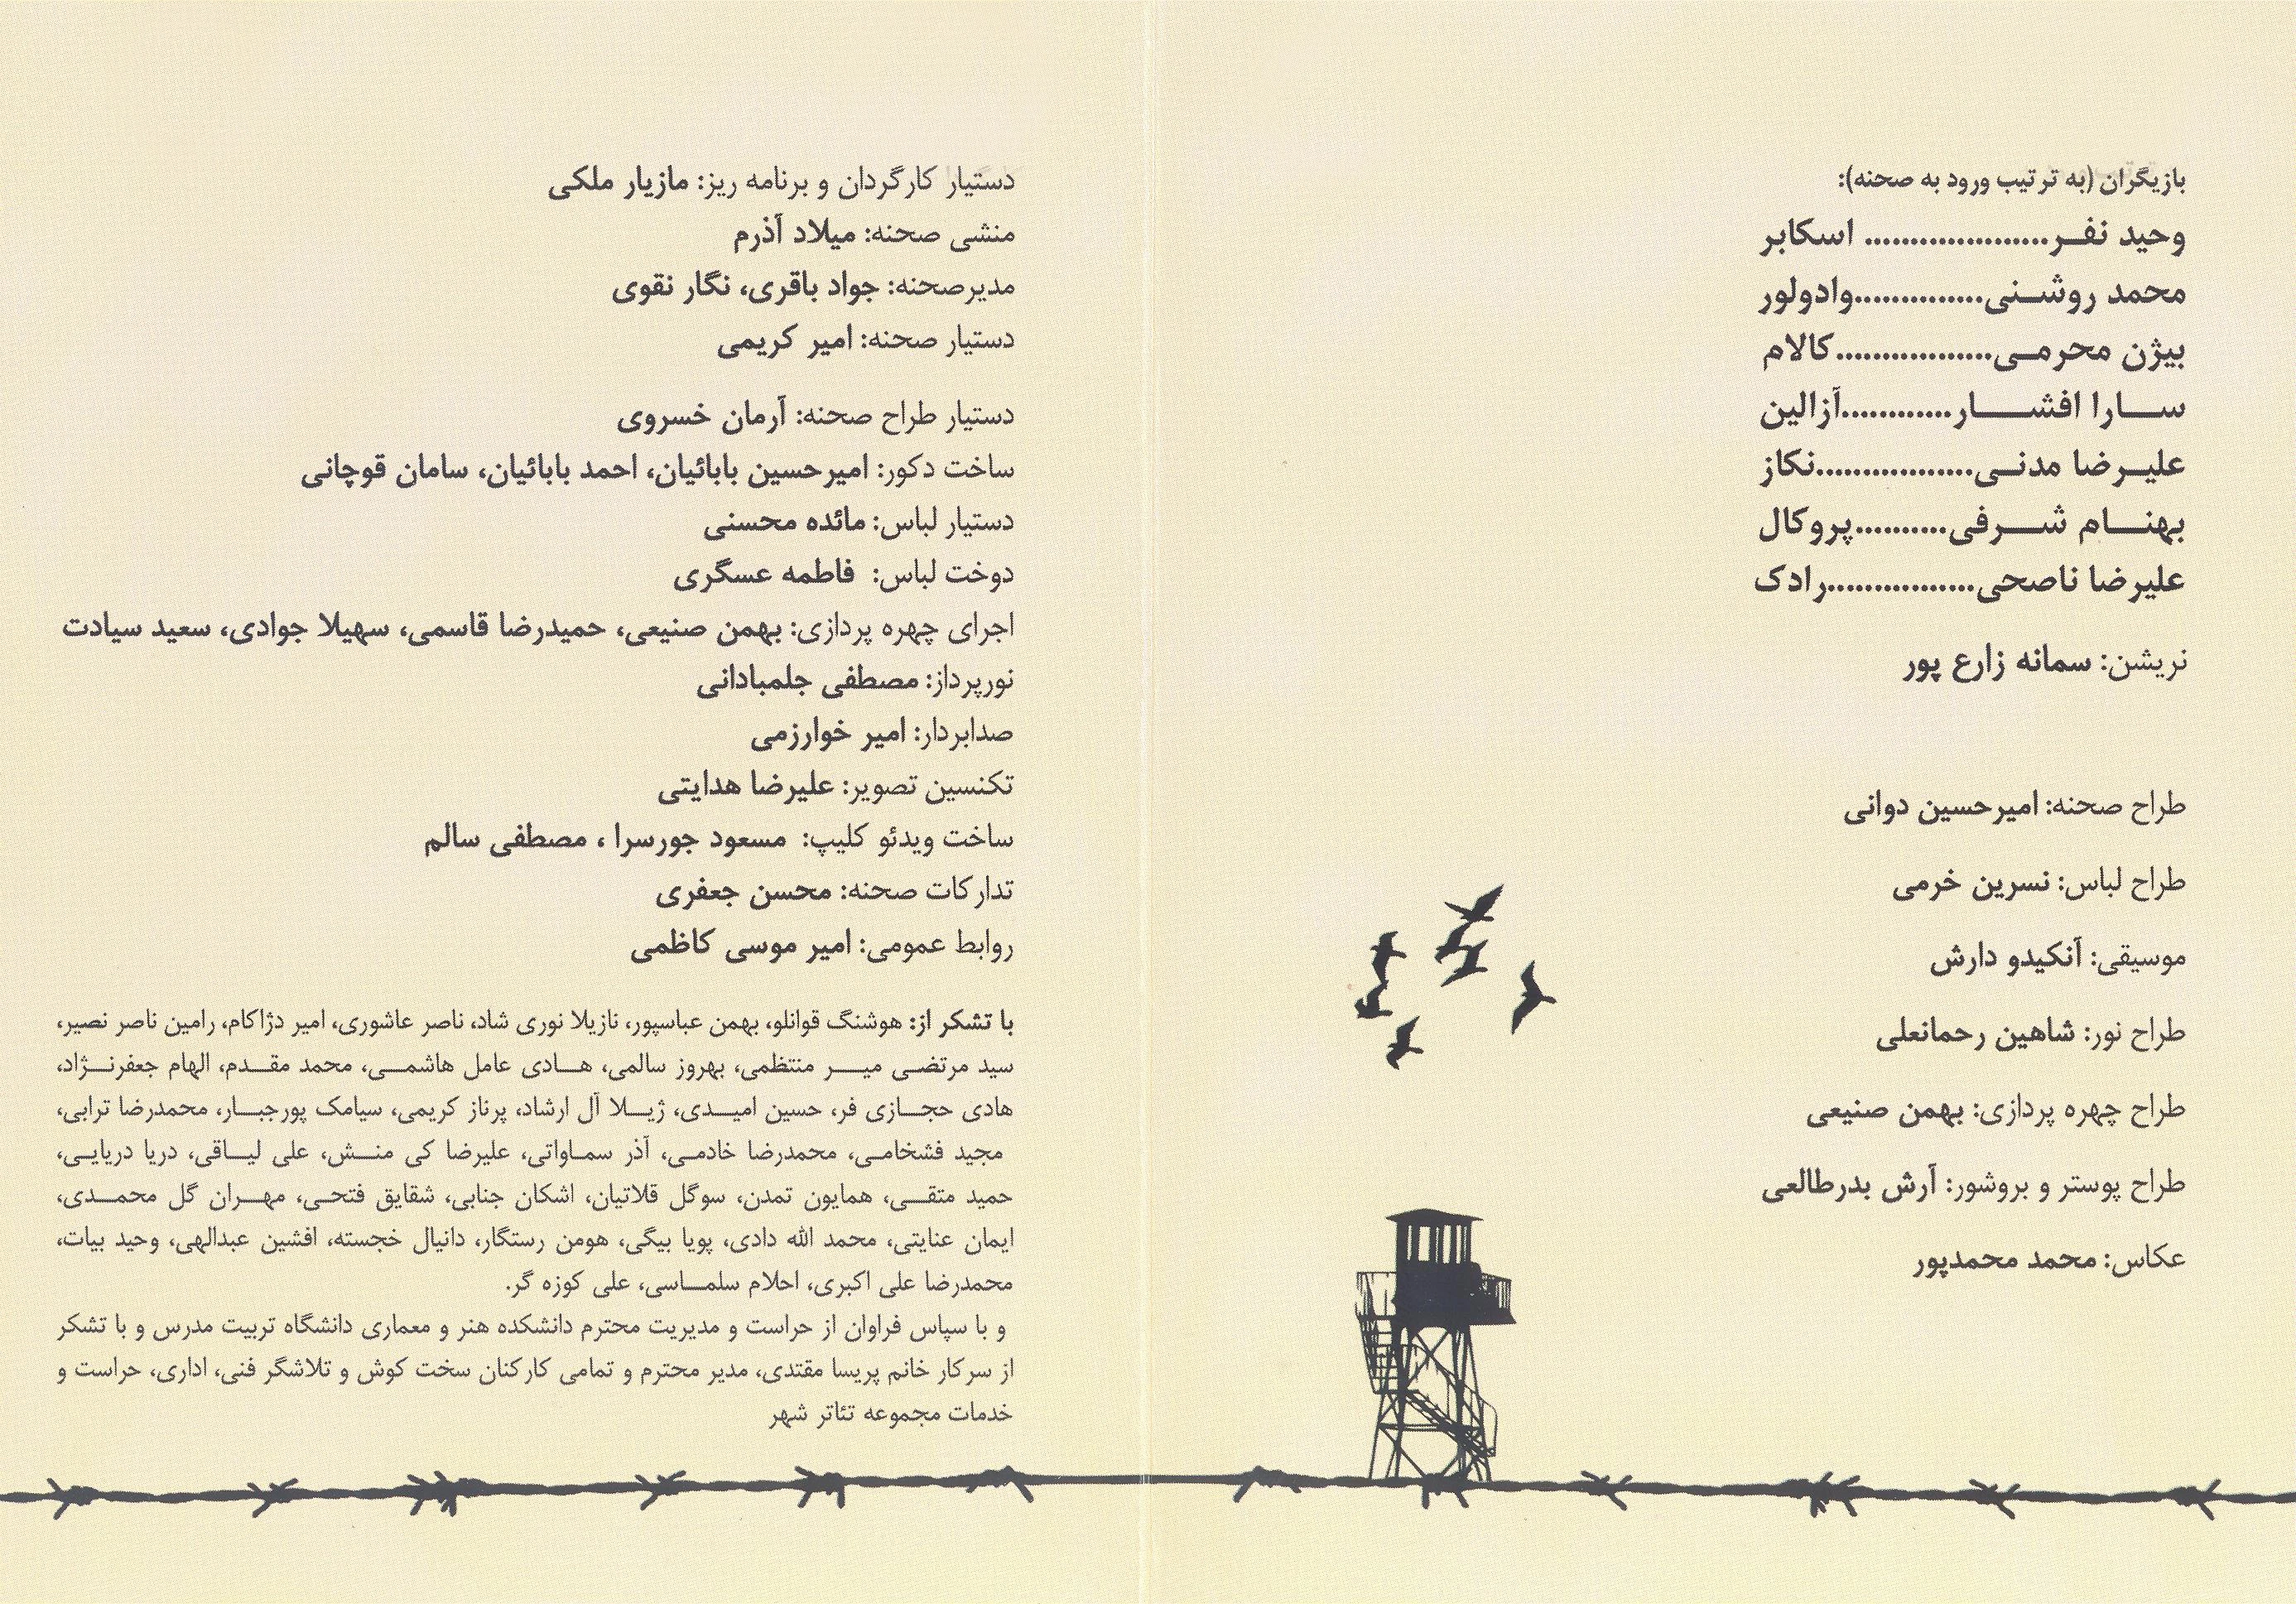 بازیگران (به ترتیب ورود به صحنه):
وحید نفـر.................... اسکابر
محمد روشـنی..............وادولور
بیژن محرمـی.................کالام
ســارا افشـــــار............آزالین
علیـرضا مدنـی.................نکاز
بهنـــام شـــرفی..........پروکال
علیرضا ناصحی................رادک
نریشن: سمانه زارع پور
طراح صحنه: امیرحسین دوانی
طراح لباس: نسرین خرمی
موسیقی: آنکیدو دارش
طراح نور: شاهین رحمانعلی
طراح چهره پردازی: بهمن صنیعی
طراح پوستر و بروشور: آرش بدرطالعی
عکاس: محمد محمدپور
دستیار کارگردان و برنامه ریز: مازیار ملکی
منشی صحنه: میلاد آذرم
مدیرصحنه: جواد باقری، نگار نقوی
دستیار صحنه: امیر کریمی
دستیار طراح صحنه: آرمان خسروی
ساخت دکور: امیرحسین بابائیان، احمد بابائیان، سامان قوچانی
دستیار لباس: مائده محسنی
دوخت لباس: فاطمه عسگری
اجرای چهره پردازی: بهمن صنیعی، حمیدرضا قاسمی، سهیلا جوادی، سعید سیادت
نورپرداز: مصطفی جلمبادانی
صدابردار: امیر خوارزمی
تکنسین تصویر: علیرضا هدایتی
ساخت ویدئو کلیپ: مسعود جورسرا ، مصطفی سالم
تدارکات صحنه: محسن جعفری
روابط عمومی: امیر موسی کاظمی
با تشکر از: هوشنگ قوانلو، بهمن عباسپور، نازیلا نوری شاد، ناصر عاشوری، امیر دژاکام، رامین ناصر نصیر،
سید مرتضـی میــر منتظمی، بهروز سالمی، هــادی عامل هاشمــی، محمد مقــدم، الهام جعفرنــژاد،
هادی حجــازی فر، حسین امیــدی، ژیــلا آل ارشاد، پرناز کریمی، سیامک پورجبــار، محمدرضا ترابی،
مجید فشخامـی، محمدرضا خادمـی، آذر سمـاواتی، علیرضا کی منــش، علی لیــاقی، دریا دریایـی،
حمید متقــی، همایون تمدن، سوگل قلاتیان، اشکان جنابی، شقایق فتحـی، مهــران گل محمــدی،
ایمان عنایتی، محمد الله دادی، پویا بیگی، هومن رستگار، دانیال خجسته، افشین عبدالهی، وحید بیات،
محمدرضا علی اکبری، احلام سلمــاسی، علی کوزه گر.
و با سپاس فراوان از حراست و مدیریت محترم دانشکده هنر و معماری دانشگاه تربیت مدرس و با تشکر
از سرکار خانم پریسا مقتدی، مدیر محترم و تمامی کارکنان سخت کوش و تلاشگر فنی، اداری، حراست و
خدمات مجموعه تئاتر شهر